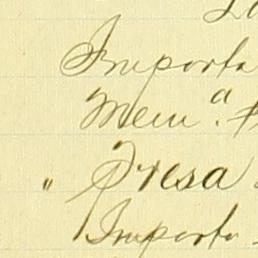 Importa
Mem.ª
" Presa
Importa